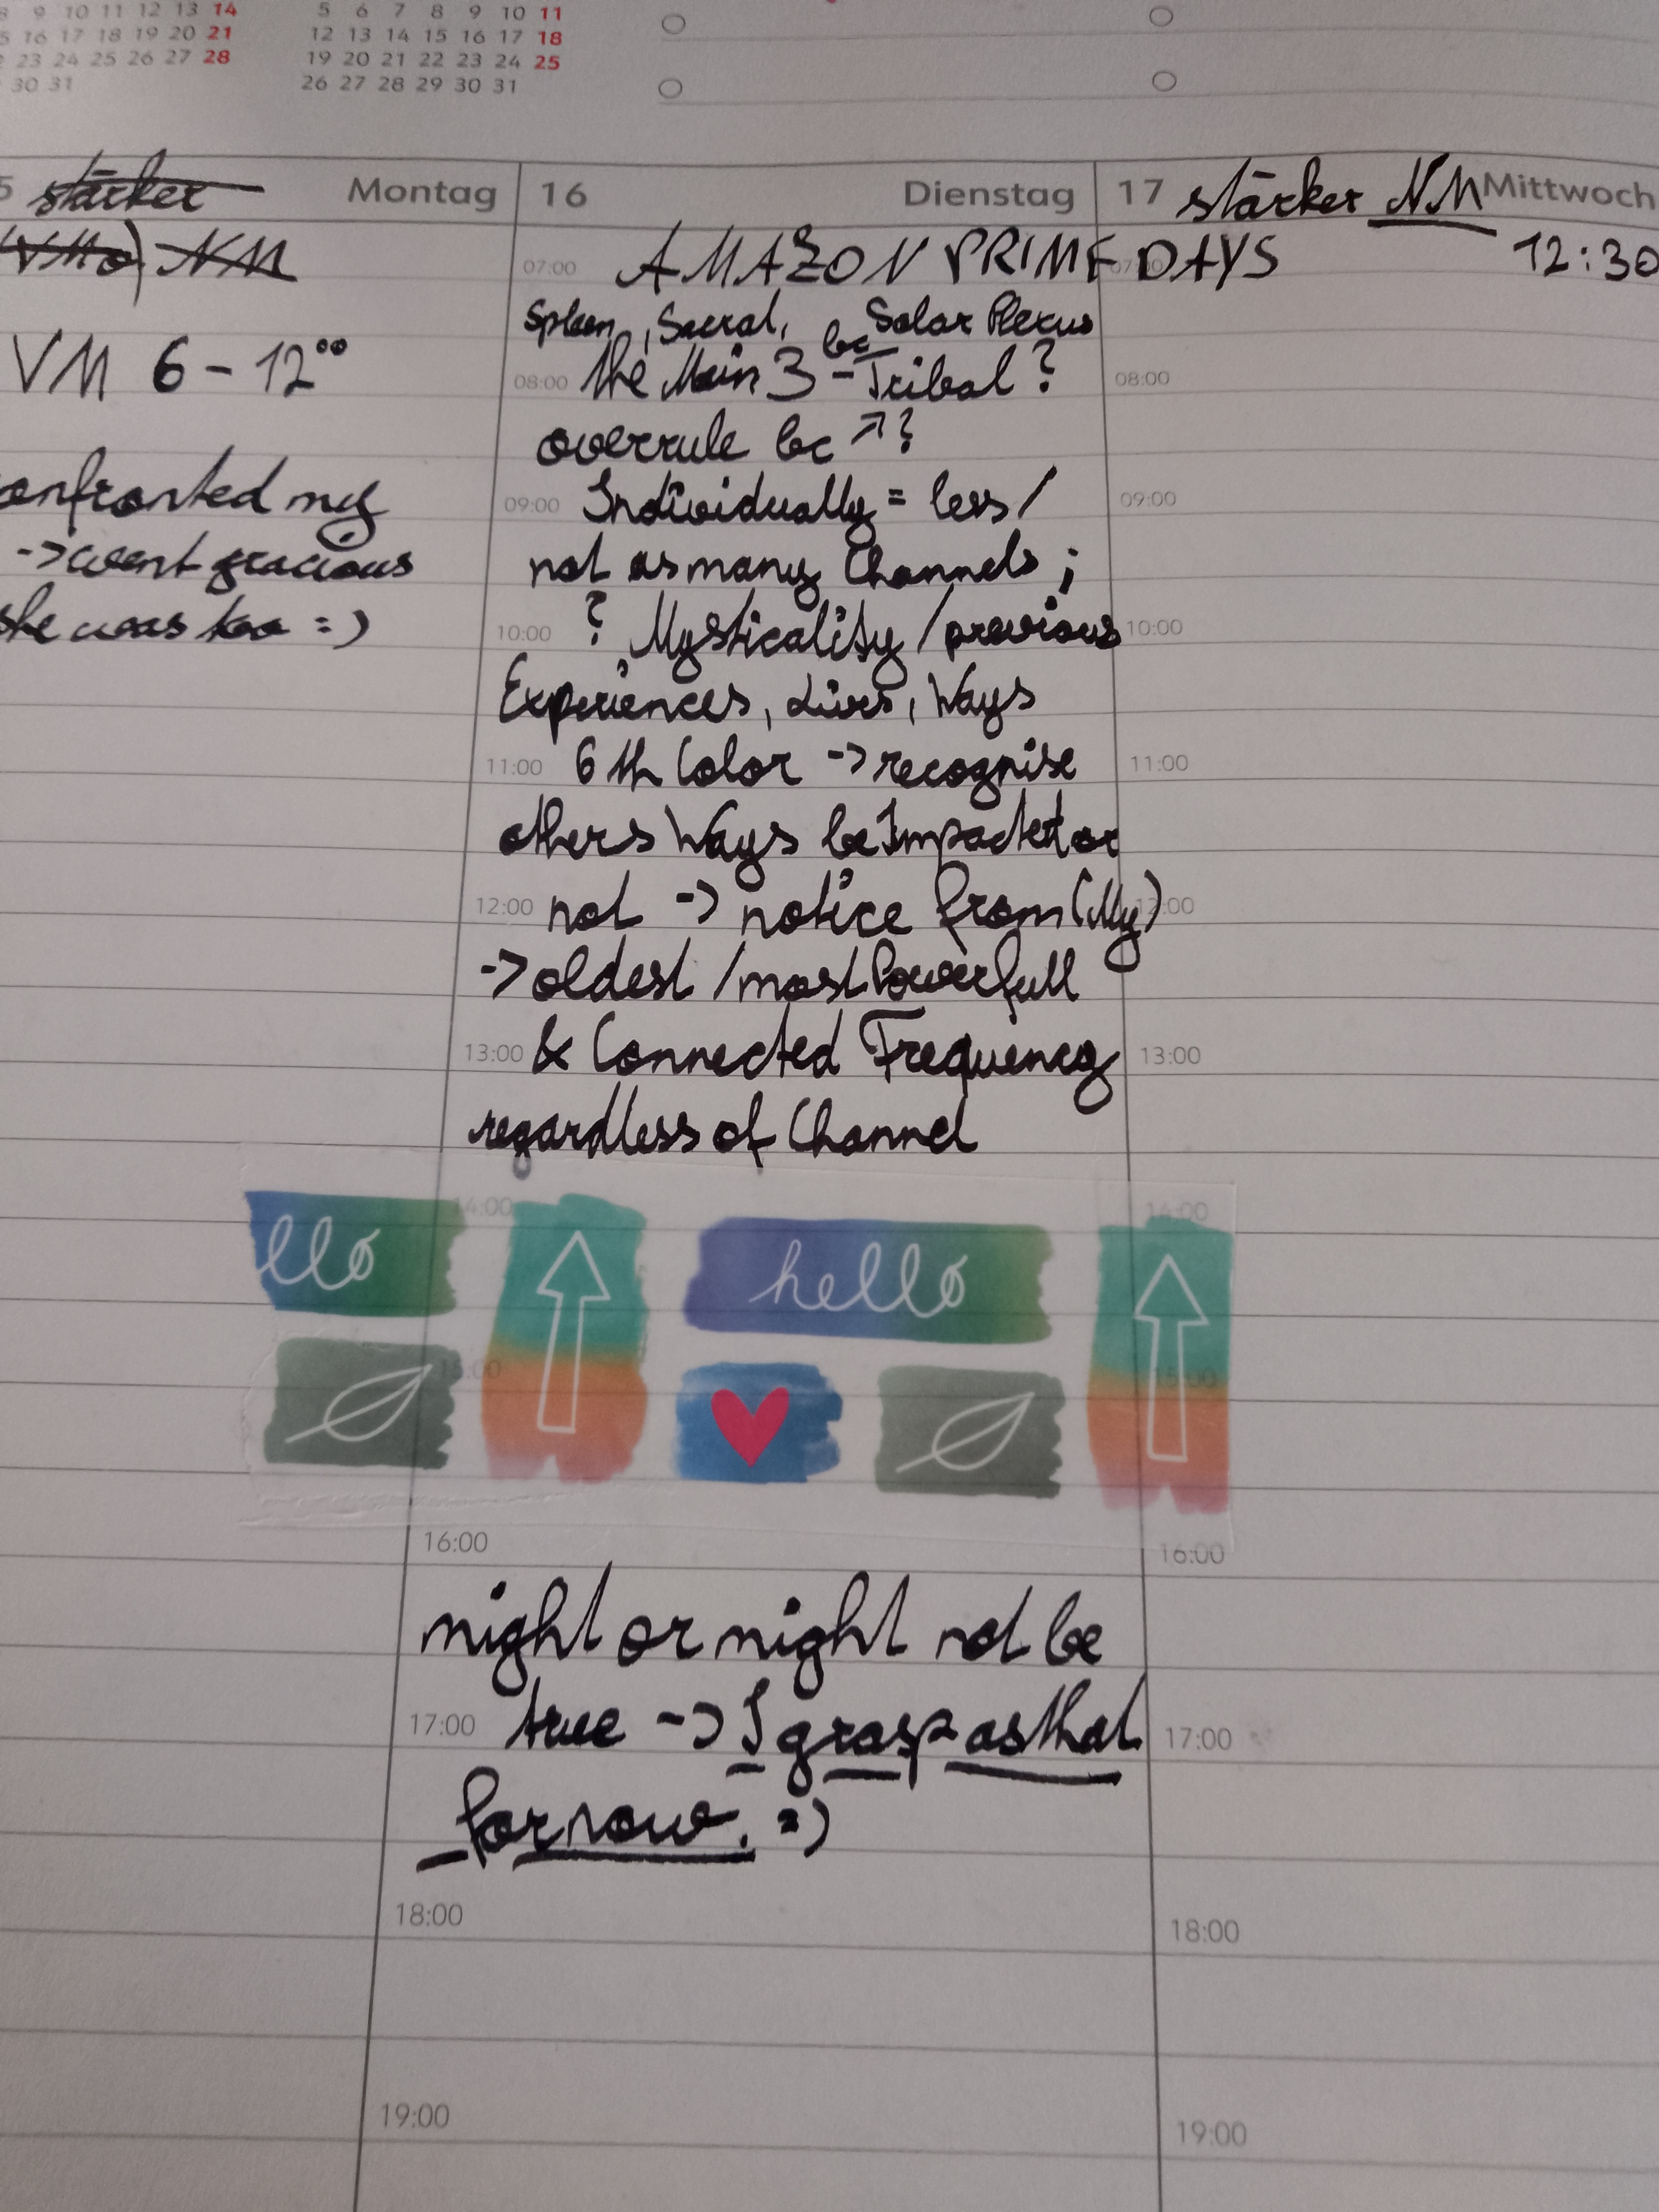 8 9 10 11 12 13 14
5 16 17 18 19 20 21
2 23 24 25 26 27 28
30 31
5 6 7 8 9 10 11
12 13 14 15 16 17 18
19 20 21 22 23 24 25
26 27 28 29 30 31
5 stärker Montag
(VMo) NM
VM 6 - 12°°
onfronted my
-> went gracious
she was too =)
16 Dienstag
07:00 AMAZON PRIME DAYS
Spleen, Sacral, Solar Plexus
08:00 the Main 3 - bc Tribal?
overrule bc ↗?
09:00 Individually = less /
not as many Channels;
10:00 ? Mysticality / previous
Experiences, Lives, Ways
11:00 6th Color -> recognise
others Ways be Impacted or
12:00 not -> notice from (My)
-> oldest / most Powerfull
13:00 & Connected Frequency
regardless of Channel
14:00
llo
hello
15:00
16:00
might or might not be
17:00 true -> I grasp as that
for now. =)
18:00
19:00
17 stärker NM Mittwoch
07:00 12:30
08:00
09:00
10:00
11:00
12:00
13:00
14:00
15:00
16:00
17:00
18:00
19:00